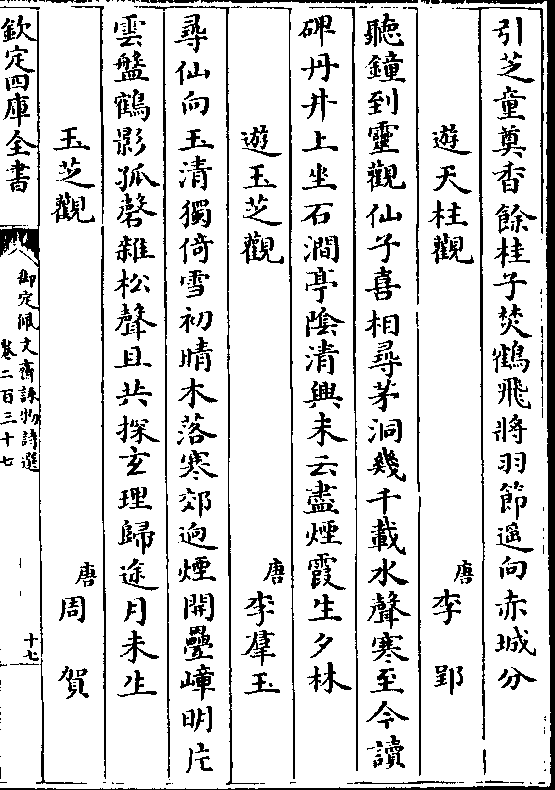 引芝童奠香餘桂子焚鶴飛將羽節遥向赤城分
遊天柱觀 唐 李郢
聽鐘到靈觀仙子喜相尋茅洞幾千載水聲寒至今讀
碑丹井上坐石澗亭陰清興未云盡煙霞生夕林
遊玉芝觀 唐 李羣玉
尋仙向玉清獨倚雪初晴木落寒郊迥煙開疊嶂明片
雲盤鶴影孤磬雜松聲且共探玄理歸途月未生
玉芝觀 唐 周賀
欽定四庫全書
御定佩文齋詠物詩選
卷二百三十七
十七